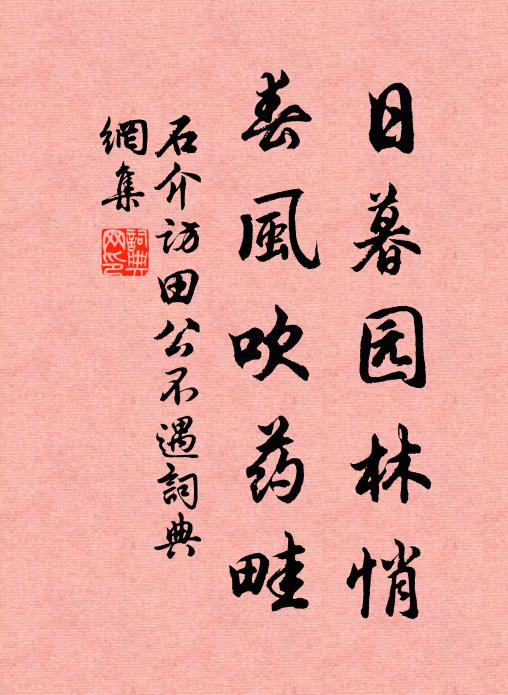 日暮园林悄
春風吹药畦
石介访田公不遇詞典
網集
詞典网印